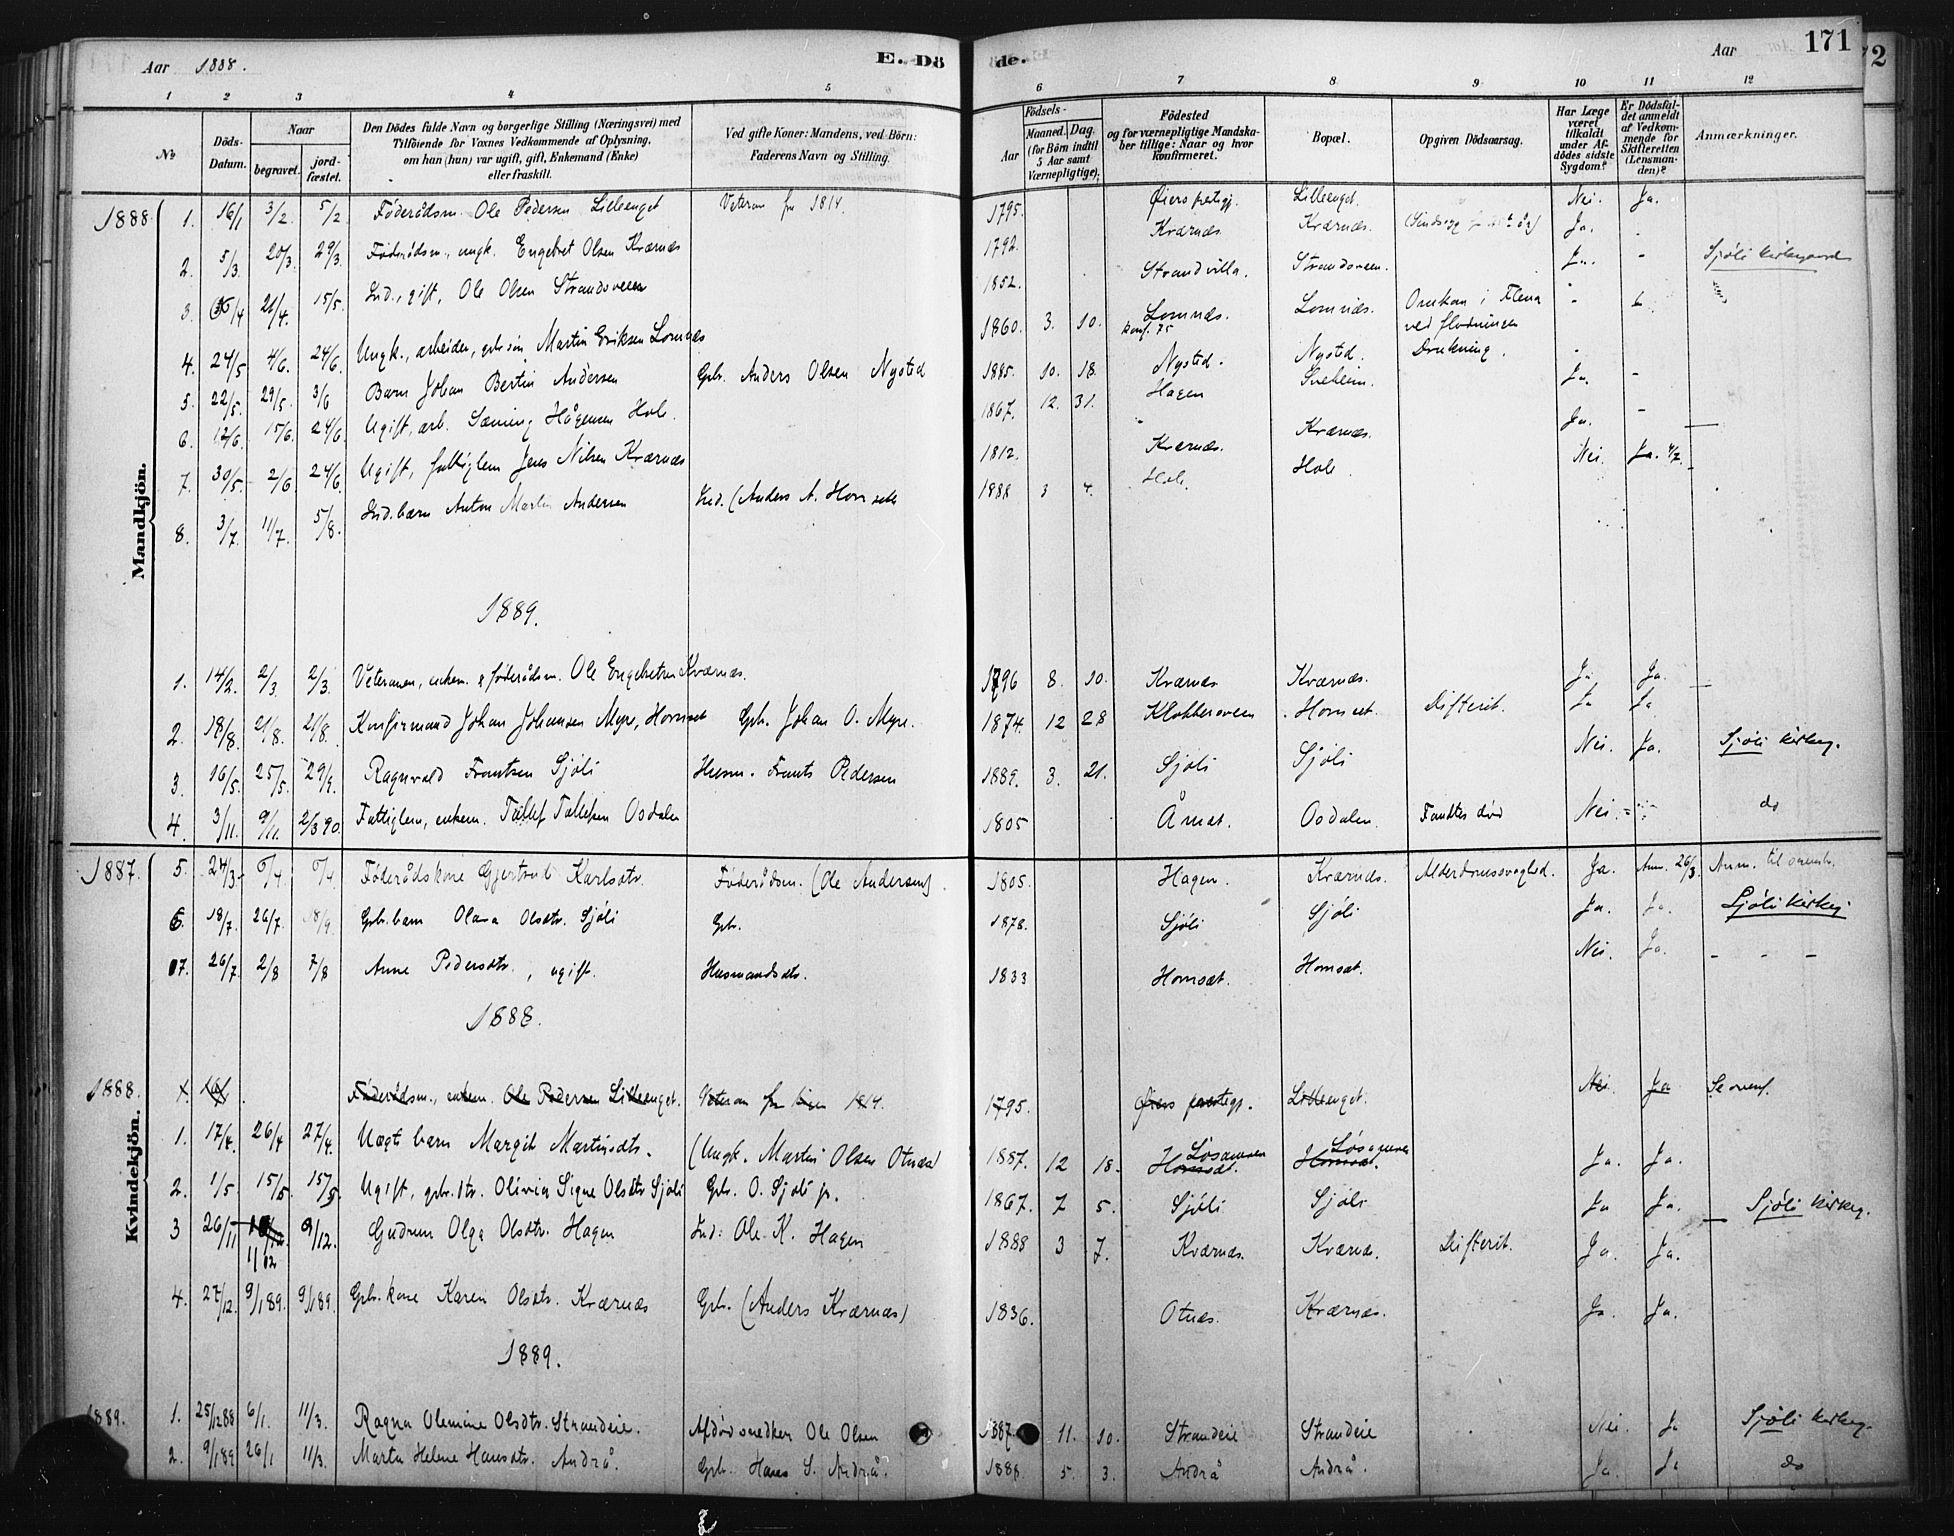 Aar 1888.
E. Dö
de.
Aar
171
1 2 3 4 5
6 7 8 9 10 11 12
No
Döds-Datum.
Naar
begravet.
jord-fæstet.
Den Dödes fulde Navn og borgerlige Stilling (Næringsvei) med
Tilföiende for Voxnes Vedkommende af Oplysning,
om han (hun) var ugift, gift, Enkemand (Enke)
eller fraskilt.
Ved gifte Koner: Mandens, ved Börn:
Faderens Navn og Stilling.
Födsels-
Aar
Maaned. Dag.
(for Börn indtil
5 Aar samt
Værnepligtige).
Födested
og for værnepligtige Mandska-
ber tillige: Naar og hvor
konfirmeret.
Bopæl.
Opgiven Dödsaarsag.
Har Læge
været
tilkaldt
under Af-
dödes sidste
Sygdom?
Er Dödsfal-
det anmeldt
af Vedkom-
mende for
Skifteretten
(Lensman-
den)?
Anmærkninger.
Mandkjön.
1888 1. 16/1 3/2. 5/2 Føderådsm. Ole Pedersen Lilleenget Veteran fra 1814. 1795. Øiers prestgj. Lilleenget. Nei. Ja.
2. 5/3. 20/3. 29/3. Føderådsm., ungk. Engebret Olsen Kværnæs 1792. Kværnæs Kværnæs. Ja. -
3. 21/4. 15/5. Ind., gift, Ole Olsen Strandsveen 1852. Strandvilla. Strandsveen. Ja. - Sjøli kirkegaard
4. 24/5 4/6. 24/6. Ungk., arbeider, gbr.søn Martin Eriksen Lomnæs 1860. 3. 10. Lomnæs. konf. 75 Lomnæs. Omkom i Flena
ved flødningen
5. 22/5. 29/5. 3/6 Barn Johan Bertin Andersen Gbr. Anders Olsen Nysted 1885. 10. 18. Nysted. Nysted. Drukning.
6. 12/6. 15/6. 24/6. Ugift, arb. Sæming Hågensen Hole. 1867. 12. 31. Hagen Ja. -
7. 30/5. 2/6. 24/6. Ugift, fattiglem Jens Nilsen Kværnæs 1812. Kværnæs. Kværnæs. Ja. -
8. 3/7. 11/7. 5/8. Ind. barn Anton Martin Andersen Ind. (Anders A. Hornsæt 1888 3 4. Hole. Hole. Nei. Ja. 4/7.
1889.
1. 14/2. 2/3. 2/3. Veteranen, enkem. & føderådsm. Ole Engebretsen Kværnæs. 1796 8. 10. Kværnæs Kværnæs. Ja. Ja.
2. 18/8. 21/8. 21/8. Konfirmand Johan Johansen Myre, Hornsæt Gbr. Johan O. Myre. 1874. 12 28 Klokkersveen Hornsæt. Difterit. Ja Ja
3. 16/5. 25/5. 29/9. Ragnvald Frantsen Sjøli Husm. Frants Pedersen 1889. 3. 21. Sjøli Sjøli Nei. Ja. Sjøli kirkeg.
4. 3/11. 9/11. 2/3 90. Fattiglem, enkem. Tollef Tollefsen Osdalen 1805 Åmot. Osdalen. Fandtes død Nei. do
1887. 5. 24/3. 6/4. 6/4. Føderådskone Gjertrud Karlsdtr. Føderådsm. (Ole Andersen). 1805. Hagen. Kværnæs. Alderdomssvaghed. Ja. Anm. 26/3. Anm. til ovenst.
6. 18/7. 26/7. 18/9. Gbr. barn Olava Olsdtr. Sjøli Gbr. 1878. Sjøli Sjøli Ja. Ja. Sjøli kirkeg.
7. 26/7. 2/8 7/8 Anne Pedersdtr., ugift. Husmandsdtr. 1833 Hornsæt. Hornsæt. Nei. Ja. - - -
1888.
Kvindekjön.
1888. Føderådsm., enkem. Ole Pedersen Lilleenget. Veteran fra 1814. 1795. Øiers prestegj. Lilleenget. Nei Ja Se ovenf.
1. 17/4. 26/4 27/4. Uægt. barn Margit Martinsdtr. (Ungk. Martin Olsen Otnæs) 1887. 12 18. Hornsæt. Hornsæt. Ja. Ja.
2. 1/5. 15/5. 15/5. Ugift, gbr.dtr. Olivia Signe Olsdtr Sjøli Gbr. O. Sjøli jr. 1867. 7 5. Sjøli Sjøli Ja Ja. Sjøli kirkeg.
3 26/11 11/12 9/12. Gudrun Olga Olsdtr. Hagen Ind: Ole K. Hagen 1888 3 7. Kværnæs. Kværnæs. Difterit. Ja. Ja.
4. 27/12. 9/1 89. 9/1 89. Gbr. kone Karen Olsdtr. Kværnæs Gbr. (Anders Kværnæs) 1836. Otnæs. Kværnæs. Ja. Ja.
1889.
1889. 1. 25/12 88 6/1. 11/3. Ragna Olemine Olsdtr. Strandeie. Afdød snedker Ole Olsen 1887. 11. 10. Strandeie Strandeie Nei. Ja Sjøli kirkeg.
2. 9/1 89 26/1 11/3. Marta Helene Hansdtr. Andrå. Gbr. Hans S. Andrå. 5. 3. Andrå Andrå. Ja. Ja do